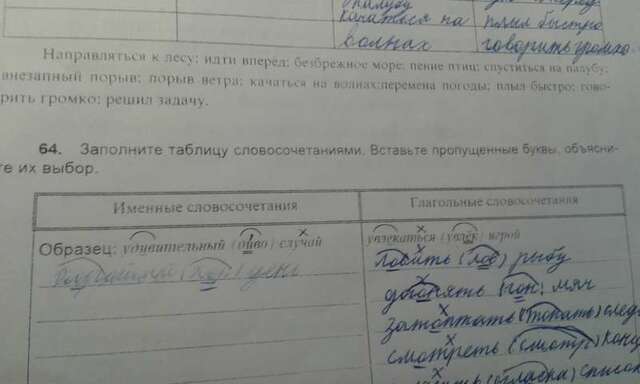 палубу
качаться на плыл быстро
волнах говорить громко.
Направляться к лесу; идти вперед; безбрежное море; пение птиц; спуститься на палубу;
внезапный порыв; порыв ветра; качаться на волнах; перемена погоды; плыл быстро; гово-
рить громко; решил задачу.
64. Заполните таблицу словосочетаниями. Вставьте пропущенные буквы, объясни-
те их выбор.
Именные словосочетания Глагольные словосочетания
Образец: удивительный (диво) случай увлекаться (увлёк) игрой
ловить (лов) рыбу
день догонять (гон) мяч
затоптать (топать) след
смотреть (смотр) конц
список